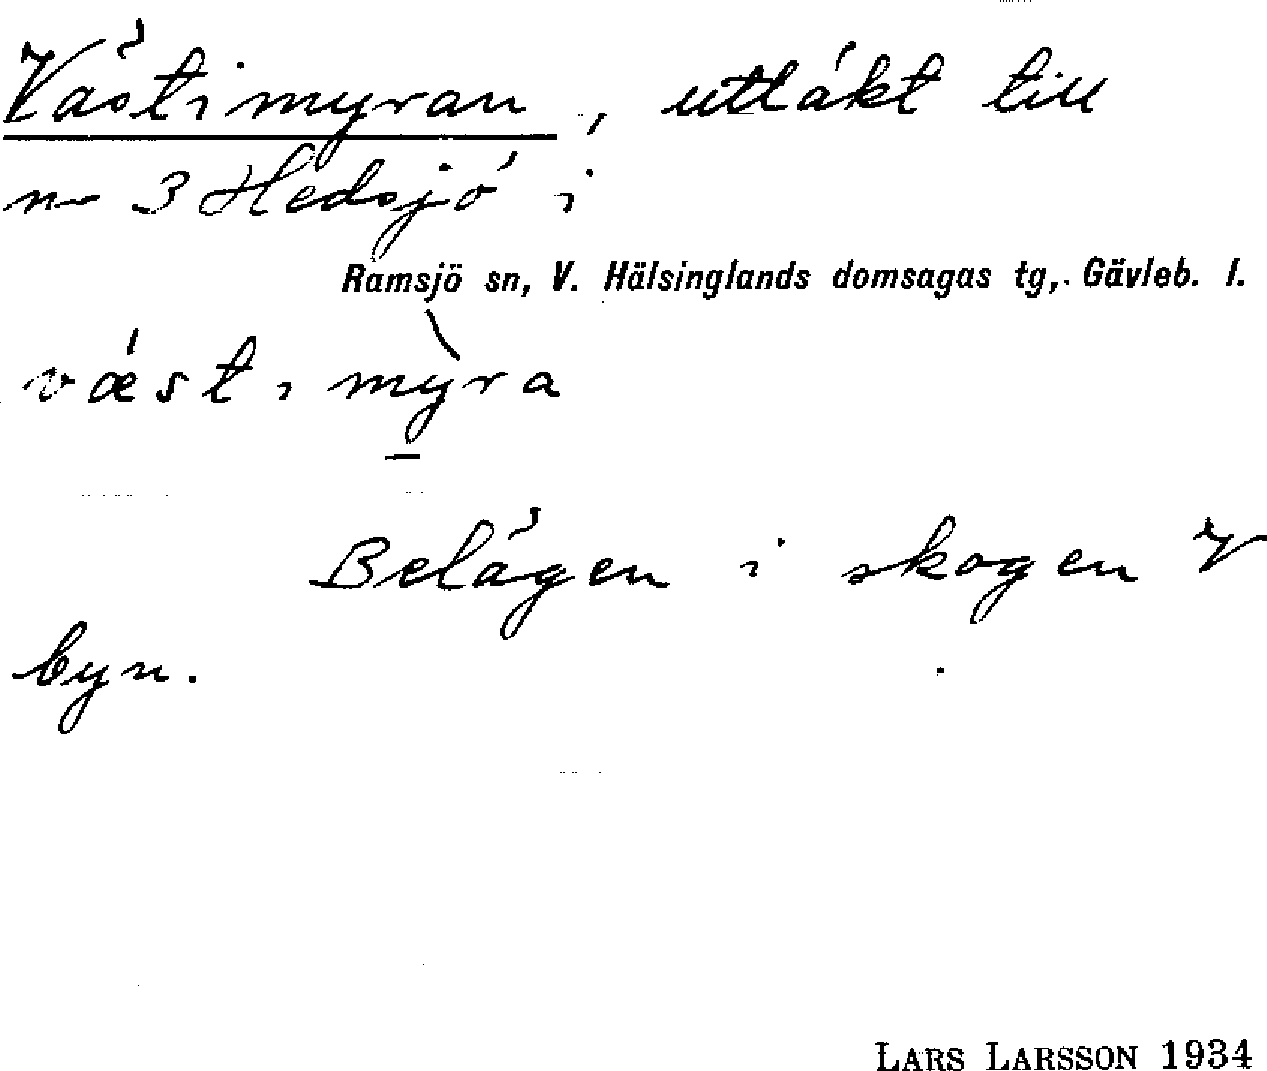 Västimyran, utläkt till
nr 3 Hedsjö i
Ramsjö sn, V. Hälsinglands domsagas tg, Gävleb. l.
vǽst i mỳ̱ra
Belägen i skogen V
byn.
LARS LARSSON 1934